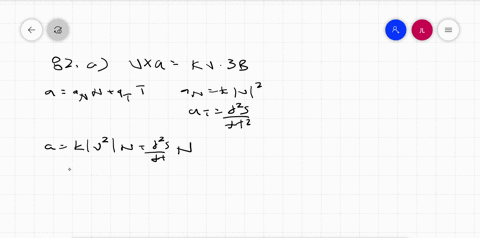 82. a) V×a = KV·3B
a = a_N N + a_T T a_N = k|V|²
a_T = d²s/dt²
a = k|v²| N = d²s/dt N